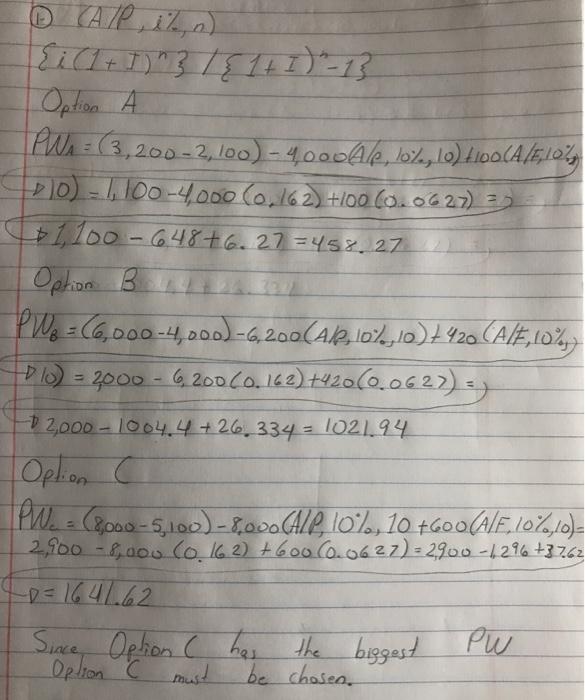 Ⓔ (A/P, i%, n)
{i(1+I)^n} / {1+I)^n-1}
Option A
PWA = (3,200-2,100)-4,000(A/P, 10%, 10)+100(A/F,10%,
10) = 1,100-4,000(0.162)+100(0.0627) =
1,100 - 648+6.27 = 458.27
Option B
PWB = (6,000-4,000)-6,200(A/P, 10%, 10)+420(A/F,10%,
10) = 2,000 - 6,200(0.162)+420(0.0627) =
2,000-1004.4+26.334 = 1021.94
Option C
PWC = (8,000-5,100)-8,000(A/P, 10%, 10 +600(A/F,10%,10)=
2,900 -8,000(0.162)+600(0.0627)=2,900-1,296+37.62
= 1641.62
Since Option C has the biggest PW
Option C must be chosen.